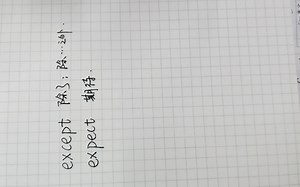 except 除了；除…之外．
expect 期待．